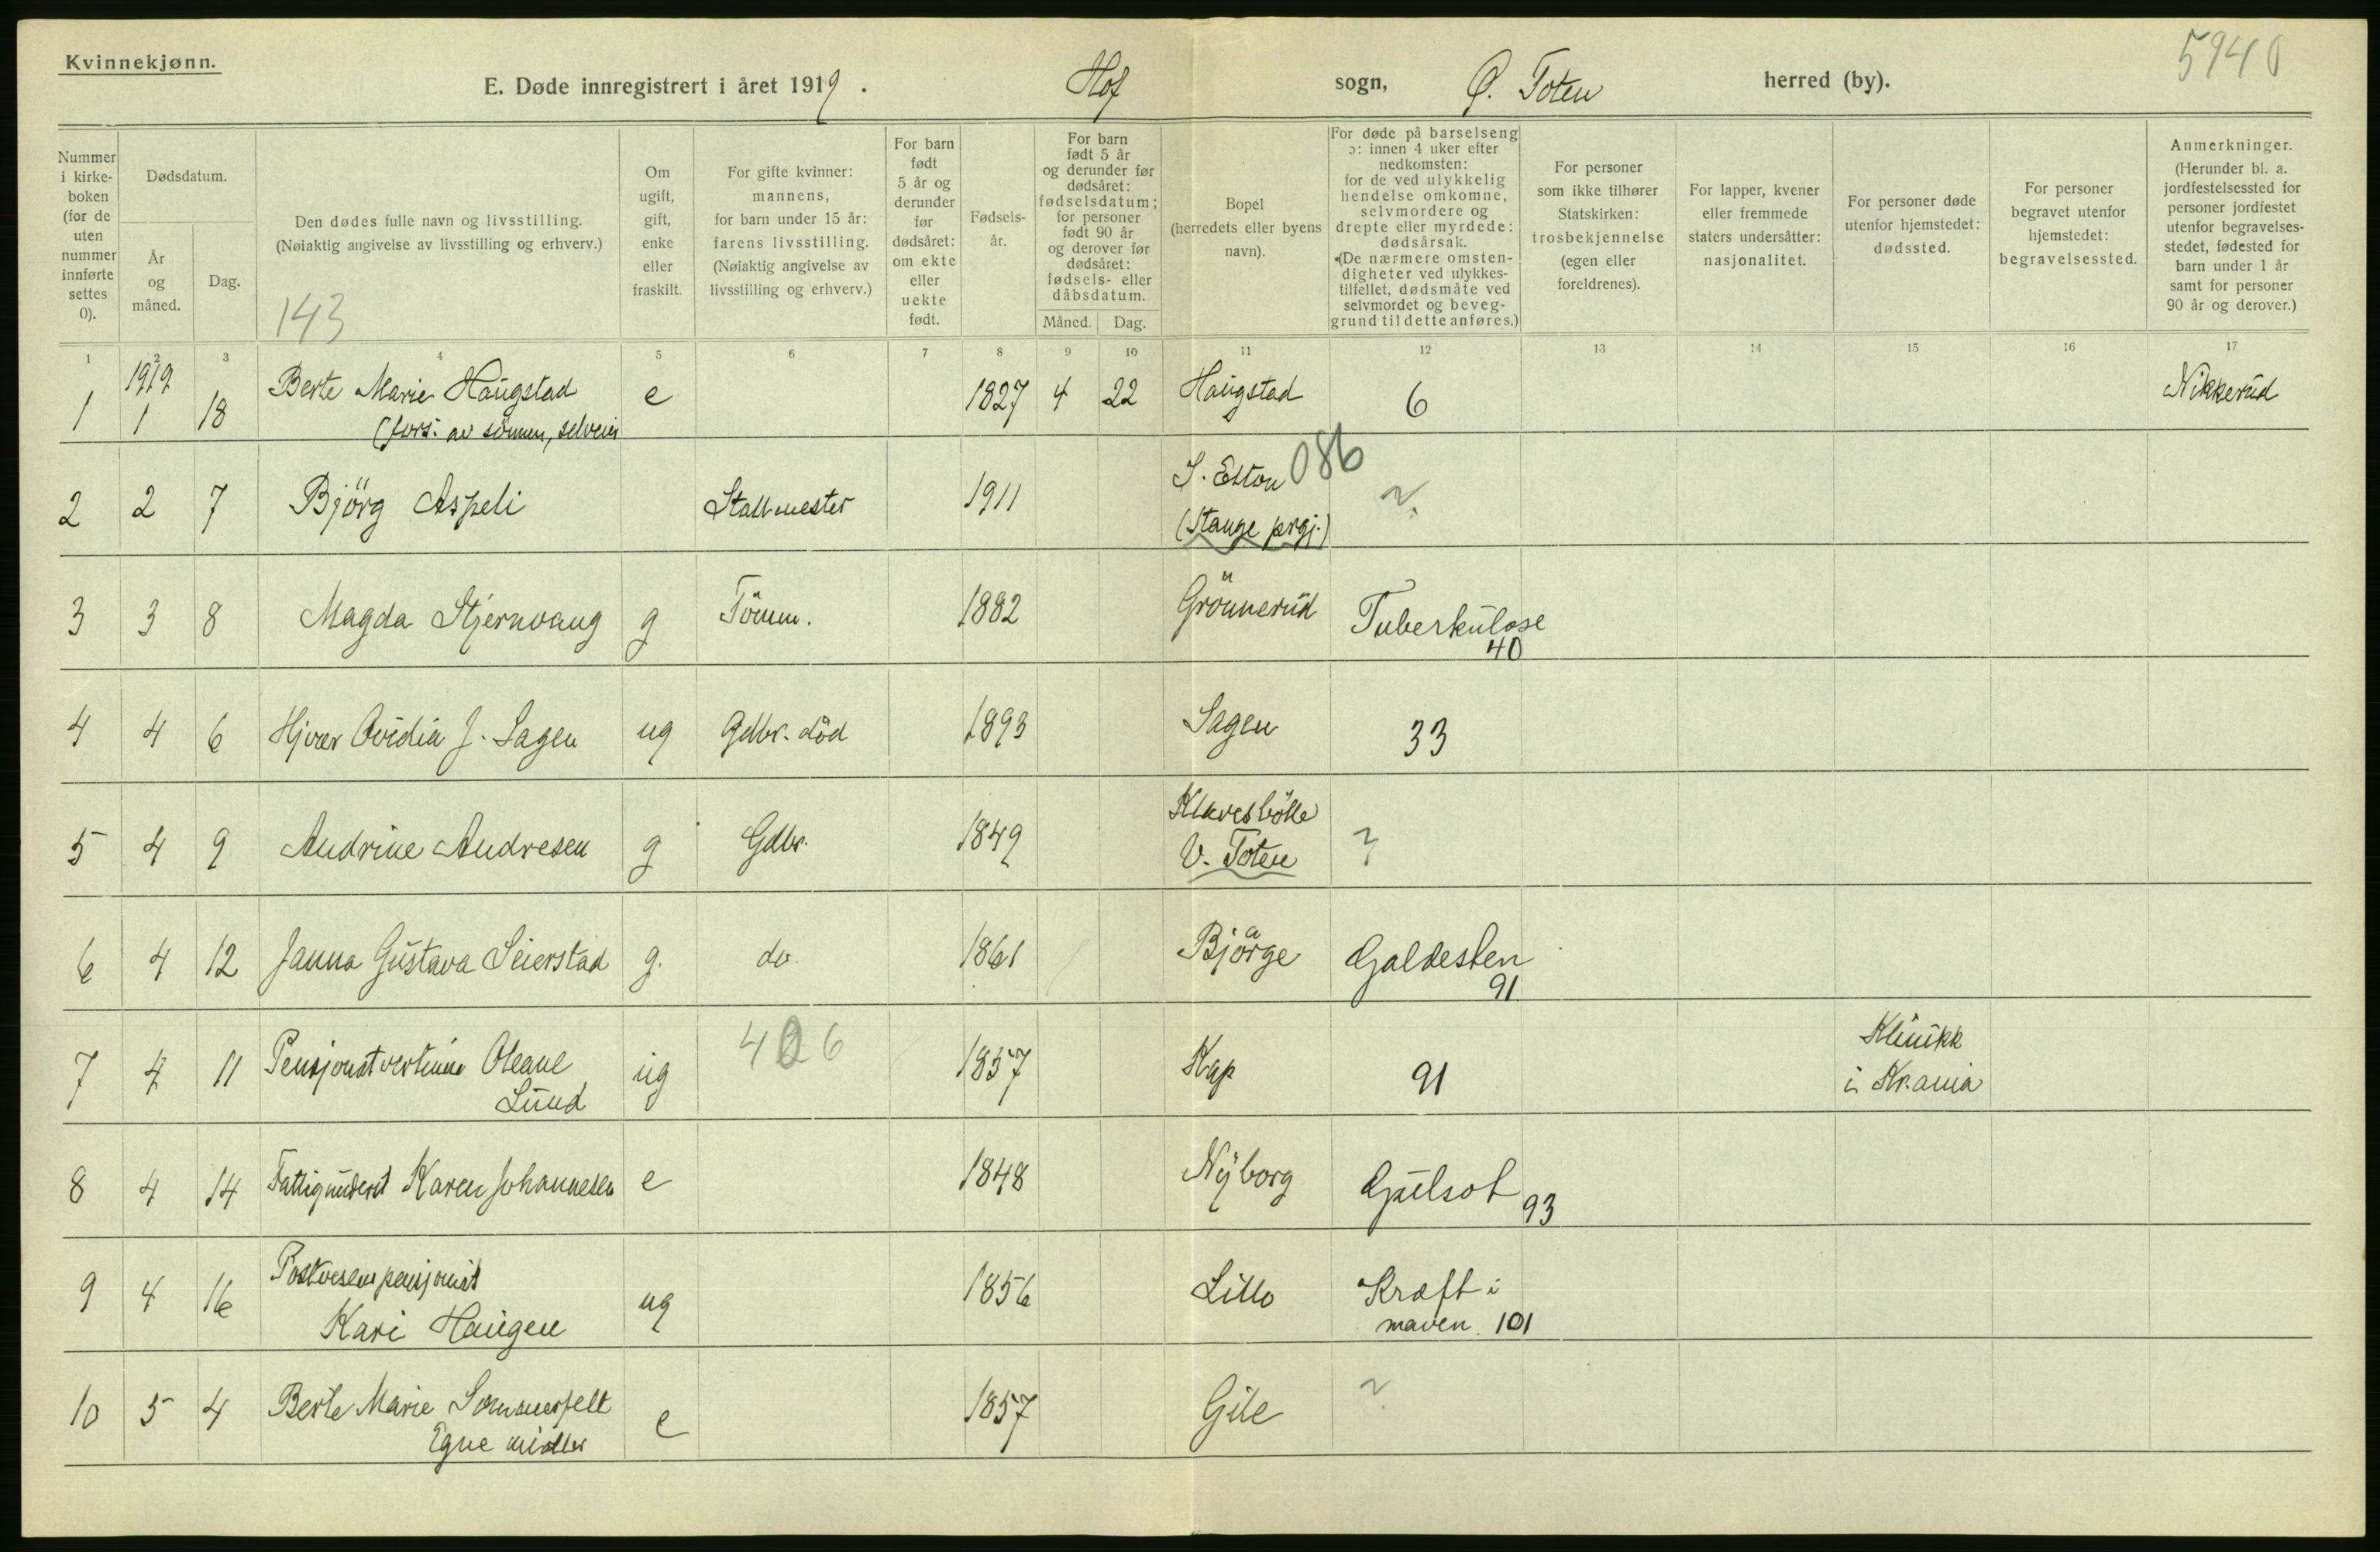 Kvinnekjønn.
5940
E. Døde innregistrert i året 1919. Hof sogn, Ø. Toten herred (by).
Nummer i kirkeboken (for de uten nummer innførte settes 0).
Dødsdatum.
År og måned.
Dag.
Den dødes fulle navn og livsstilling.
(Nøiaktig angivelse av livsstilling og erhverv.)
143
Om ugift, gift, enke eller fraskilt.
For gifte kvinner: mannens, for barn under 15 år: farens livsstilling. (Nøiaktig angivelse av livsstilling og erhverv.)
For barn født 5 år og derunder før dødsåret: om ekte eller uekte født.
Fødsels-år.
For barn født 5 år og derunder før dødsåret: fødselsdatum; for personer født 90 år og derover før dødsåret: fødsels- eller dåbsdatum.
Måned. Dag.
Bopel (herredets eller byens navn).
For døde på barselseng ɔ: innen 4 uker efter nedkomsten: for de ved ulykkelig hendelse omkomne, selvmordere og drepte eller myrdede: dødsårsak. (De nærmere omstendigheter ved ulykkestilfellet, dødsmåte ved selvmordet og beveggrund til dette anføres.)
For personer som ikke tilhører Statskirken: trosbekjennelse (egen eller foreldrenes).
For lapper, kvener eller fremmede staters undersåtter: nasjonalitet.
For personer døde utenfor hjemstedet: dødssted.
For personer begravet utenfor hjemstedet: begravelsessted.
Anmerkninger. (Herunder bl. a. jordfestelsessted for personer jordfestet utenfor begravelsesstedet, fødested for barn under 1 år samt for personer 90 år og derover.)
1 2 3 4 5 6 7 8 9 10 11 12 13 14 15 16 17
1919
1 1 18 Berte Marie Haugstad e 1827 4 22 Haugstad 6 Nikkerud
(fors. av sønnen, selveier
2 2 7 Björg Aspeli Stallmester 1911 S. Elton 086 ?
(Stange prgj.)
3 3 8 Magda Stjernvang g Tömm. 1882 Grönnerud Tuberkulose
40
4 4 6 Hjvar Ovidia J. Sagen ug Gdbr. död 1893 Sagen 33
5 4 9 Andrine Andresen g Gdbr. 1849 Klævesbölle
V. Toten ?
6 4 12 Janna Gustava Seierstad g. do. 1861 Bjørge Galdesten
91
7 4 11 Pensjonatvertinne Oleane ug 426 1857 Kap 91 Klinikk
Lund i Kr.ania
8 4 14 Fattigunderst Karen Johannesen e 1848 Nyborg Gulsot 93
9 4 16 Postvesenpensjonist
Kari Haugen ug 1856 Lillo Kræft i
maven 101
10 5 4 Berte Marie Sommerfelt e 1857 Gile ?
Egne midler